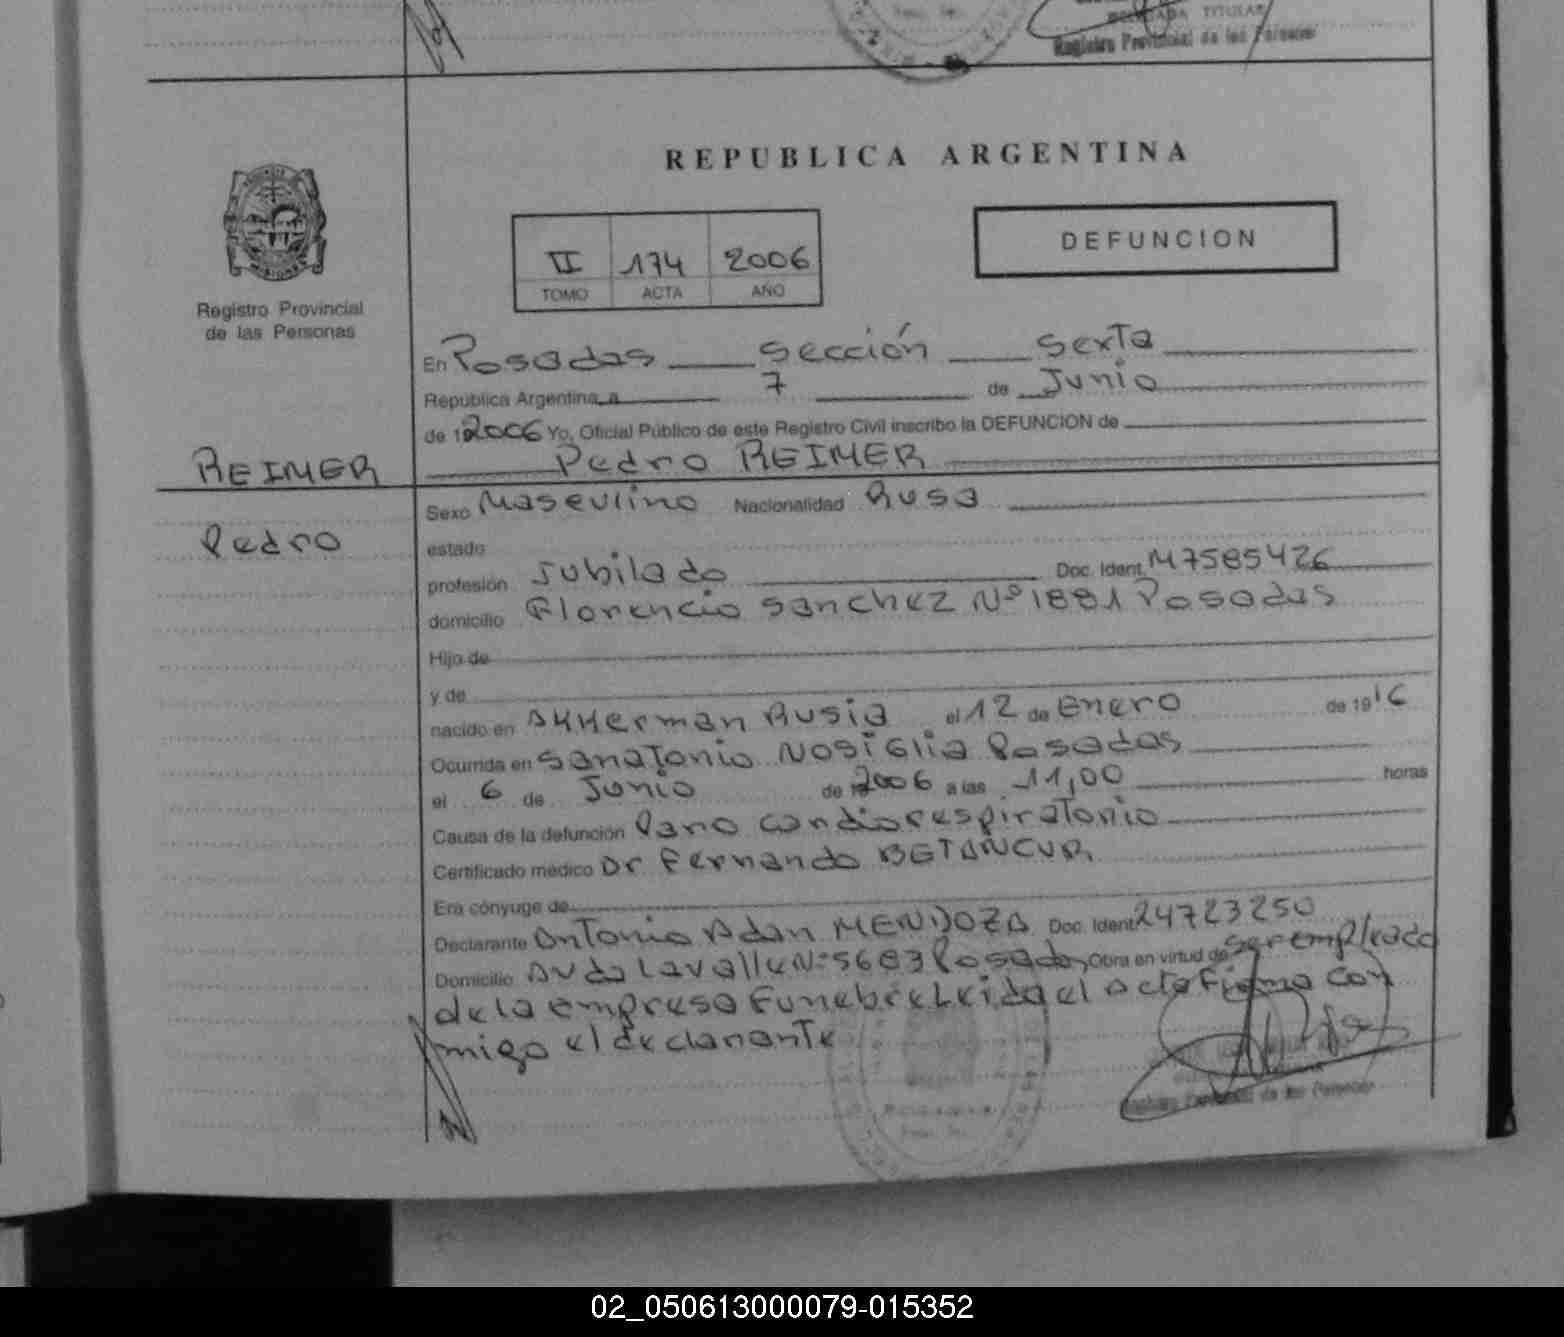 TITULAR
Registro Provincial de las Personas
REPUBLICA ARGENTINA
DEFUNCION
II 174 2006
TOMO ACTA AÑO
MISIONES
Registro Provincial
de las Personas
En Posadas sección sexta
Republica Argentina, a 7 de Junio
de 1 2006 Yo, Oficial Público de este Registro Civil inscribo la DEFUNCION de
REIMER
Pedro REIMER
Pedro
Sexo Masculino Nacionalidad Rusa
estado
profesión Jubilado Doc. Ident. M7585426
domicilio Florencio Sanchez Nº 1881 Posadas
Hijo de
y de
nacido en AKKerman Rusia el 12 de Enero de 19 16
Ocurrida en Sanatorio Nosiglia Posadas
el 6 de Junio de 2006 a las 11,00 horas
Causa de la defunción Paro cardiorespiratorio
Certificado médico Dr Fernando BETANCUR
Era cónyuge de
Declarante Antonio Adan MENDOZA Doc. Ident 24723250
Domicilio Avda Lavalle Nº 5683 Posadas Obra en virtud de ser empleado
de la empresa Funebre Leida el acta Firma con
migo el declarante
de las Personas
02_050613000079-015352